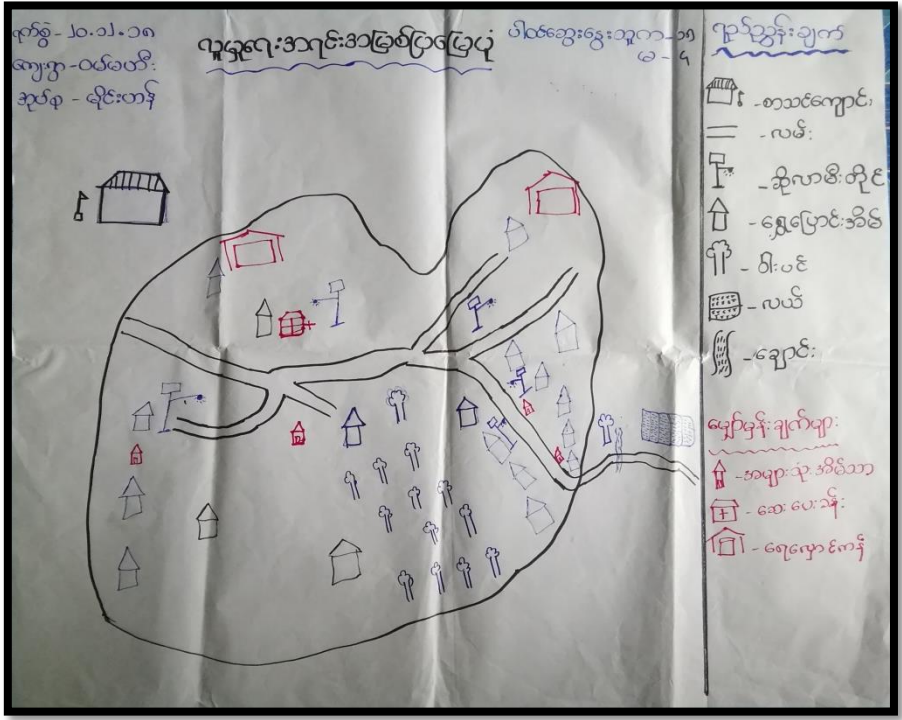 ရက်စွဲ - ၂၀.၁၂.၁၈
ကျေးရွာ - ဝပ်မဟီး
အုပ်စု - မိုင်းဟန်
လူမှုရေးအရင်းအမြစ်ပြမြေပုံ
ပါဝင်ဆွေးနွေးသူ ကျား-၁၅
မ - ၄
ရည်ညွှန်းချက်
- စာသင်ကျောင်း
- လမ်း
- ဆိုလာမီးတိုင်
- ရွှေ့ပြောင်းအိမ်
- ဝါးပင်
- လယ်
- ချောင်း
မျှော်မှန်းချက်များ
- အများသုံးအိမ်သာ
- ဆေးပေးခန်း
- ရေလှောင်ကန်